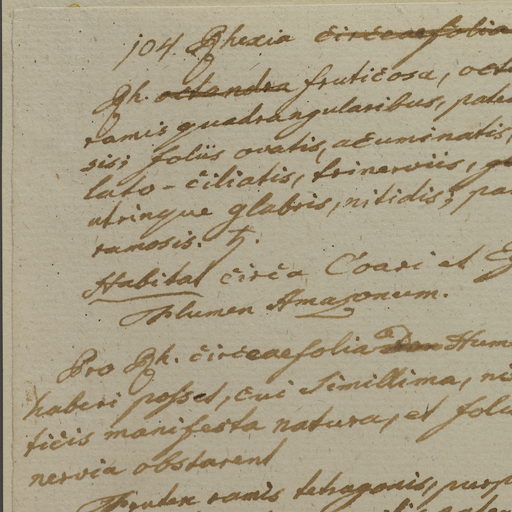 104. Rhexia circeaefolia
Rh. octandra fruticosa, octa
ramis quadrangularibus, pate
sis; foliis ovatis, acuminatis,
lato-ciliatis, trinerviis,
utrinque glabris, nitidis; pa
ramosis. ♄.
Habitat circa Coari et Eg
Flumen Amazonum.
Pro Rh. circeaefolia Hum
haberi posset, cui simillima, ni
ticis manifesta natura, et foli
nervia obstarent
Frutex ramis tetragonis, purp